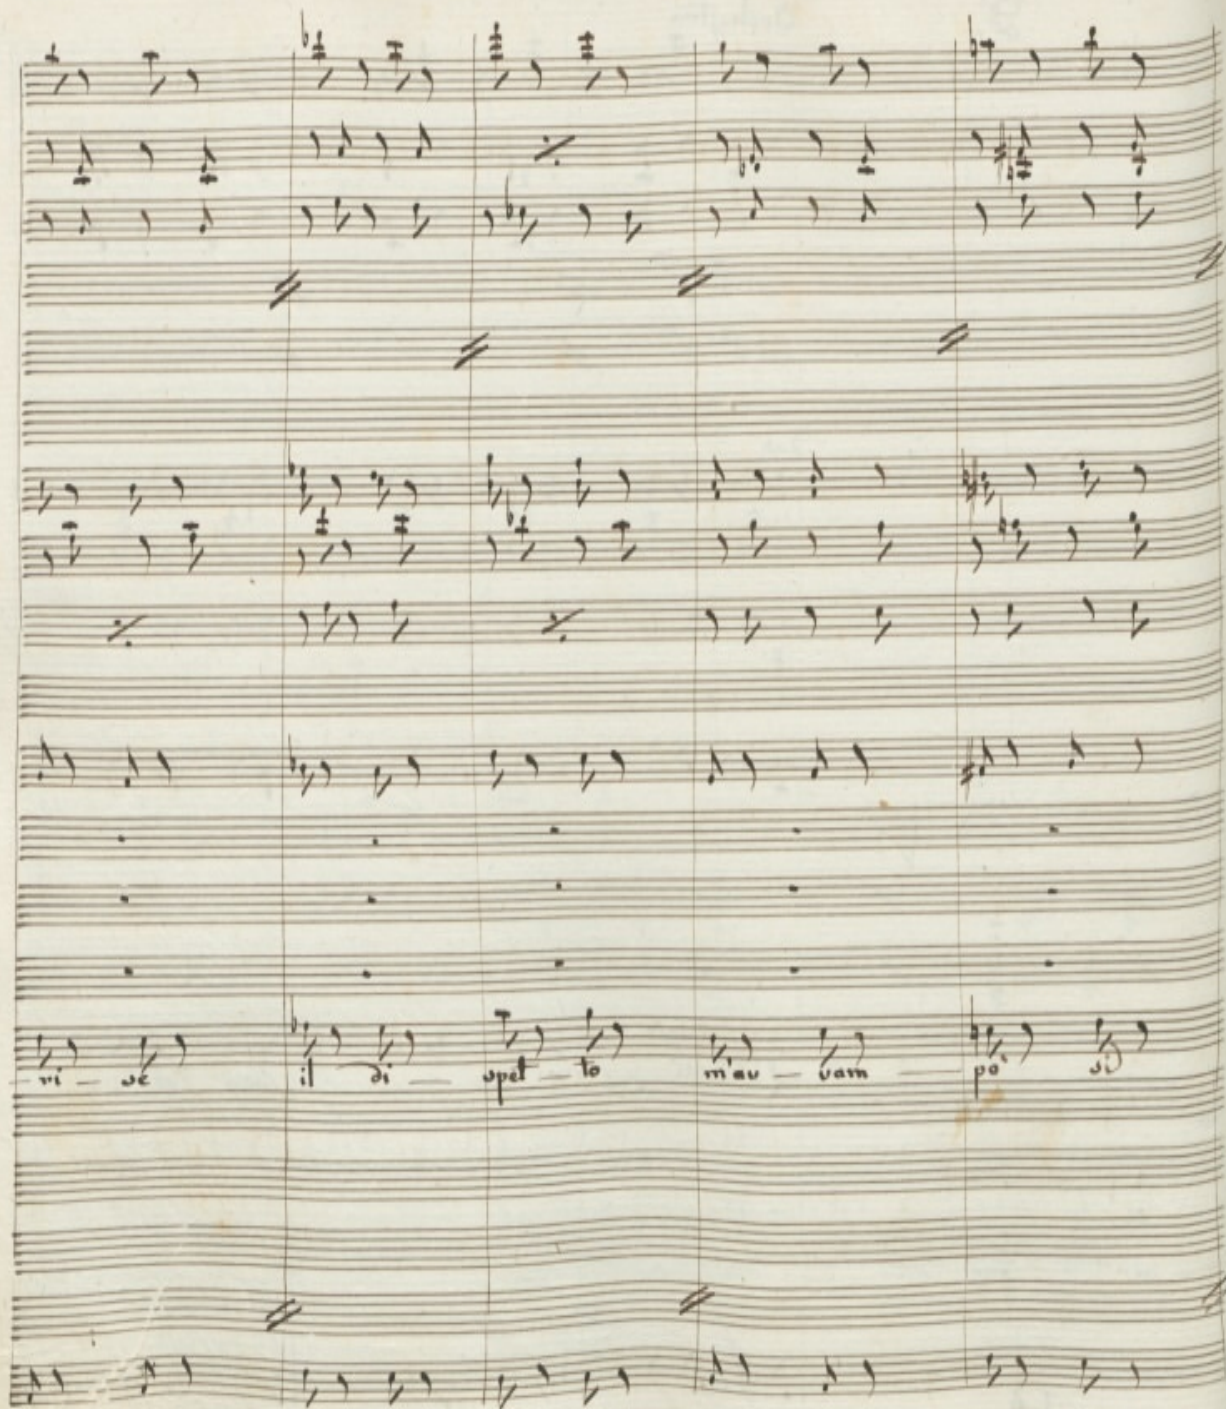 ri — se il di — spet — to m'av — vam — po' si